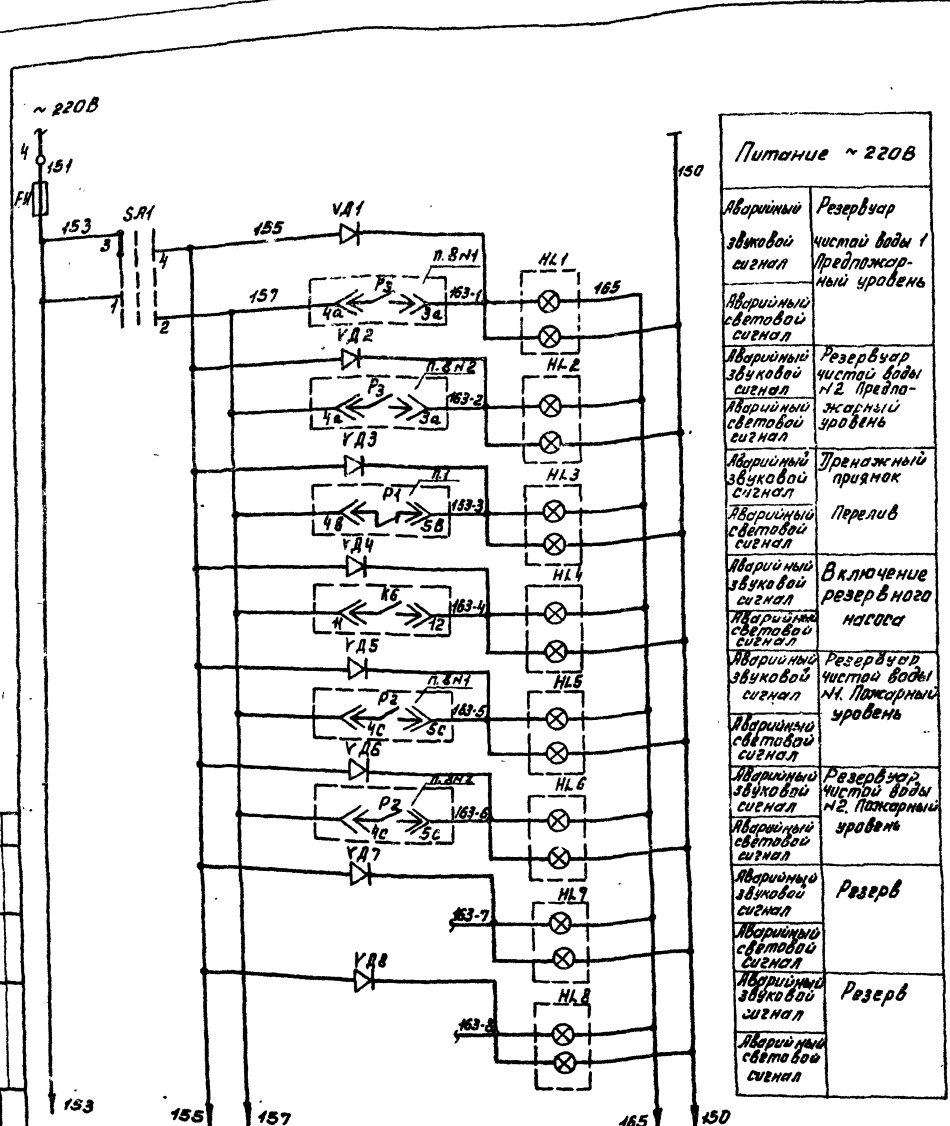 ~ 220В
4
151
FU
153
SA1
3
4
1
2
155
VД1
п. 8 №1
157
P3
4a
3a
163-1
HL1
165
150
VД2
п. 8 №2
P3
4a
3a
163-2
HL2
VД3
п.1
P1
4в
5в
153-3
HL3
VД4
K6
11
12
163-4
HL4
VД5
п. 8 №1
P2
4c
5c
163-5
HL5
VД6
п. 8 №2
P2
4c
5c
163-6
HL6
VД7
163-7
HL7
VД8
163-8
HL8
153
155
157
165
150
Питание ~ 220В
Аварийный
звуковой
сигнал
Резервуар
чистой воды 1
Предпожар-
ный уровень
Аварийный
световой
сигнал
Аварийный
звуковой
сигнал
Резервуар
чистой воды
№2 Предпо-
жарный
уровень
Аварийный
световой
сигнал
Аварийный
звуковой
сигнал
Дренажный
приямок
Аварийный
световой
сигнал
Перелив
Аварийный
звуковой
сигнал
Включение
резервного
насоса
Аварийный
световой
сигнал
Аварийный
звуковой
сигнал
Резервуар
чистой воды
№1. Пожарный
уровень
Аварийный
световой
сигнал
Аварийный
звуковой
сигнал
Резервуар
чистой воды
№2. Пожарный
уровень
Аварийный
световой
сигнал
Аварийный
звуковой
сигнал
Резерв
Аварийный
световой
сигнал
Аварийный
звуковой
сигнал
Резерв
Аварийный
световой
сигнал